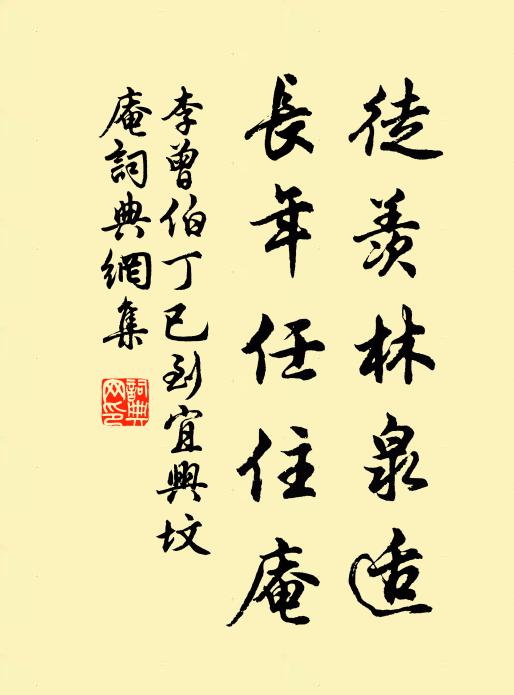 徒羨林泉适
長年任住庵
李曾伯丁巳到宜興坟
庵詞典網集
詞典网印